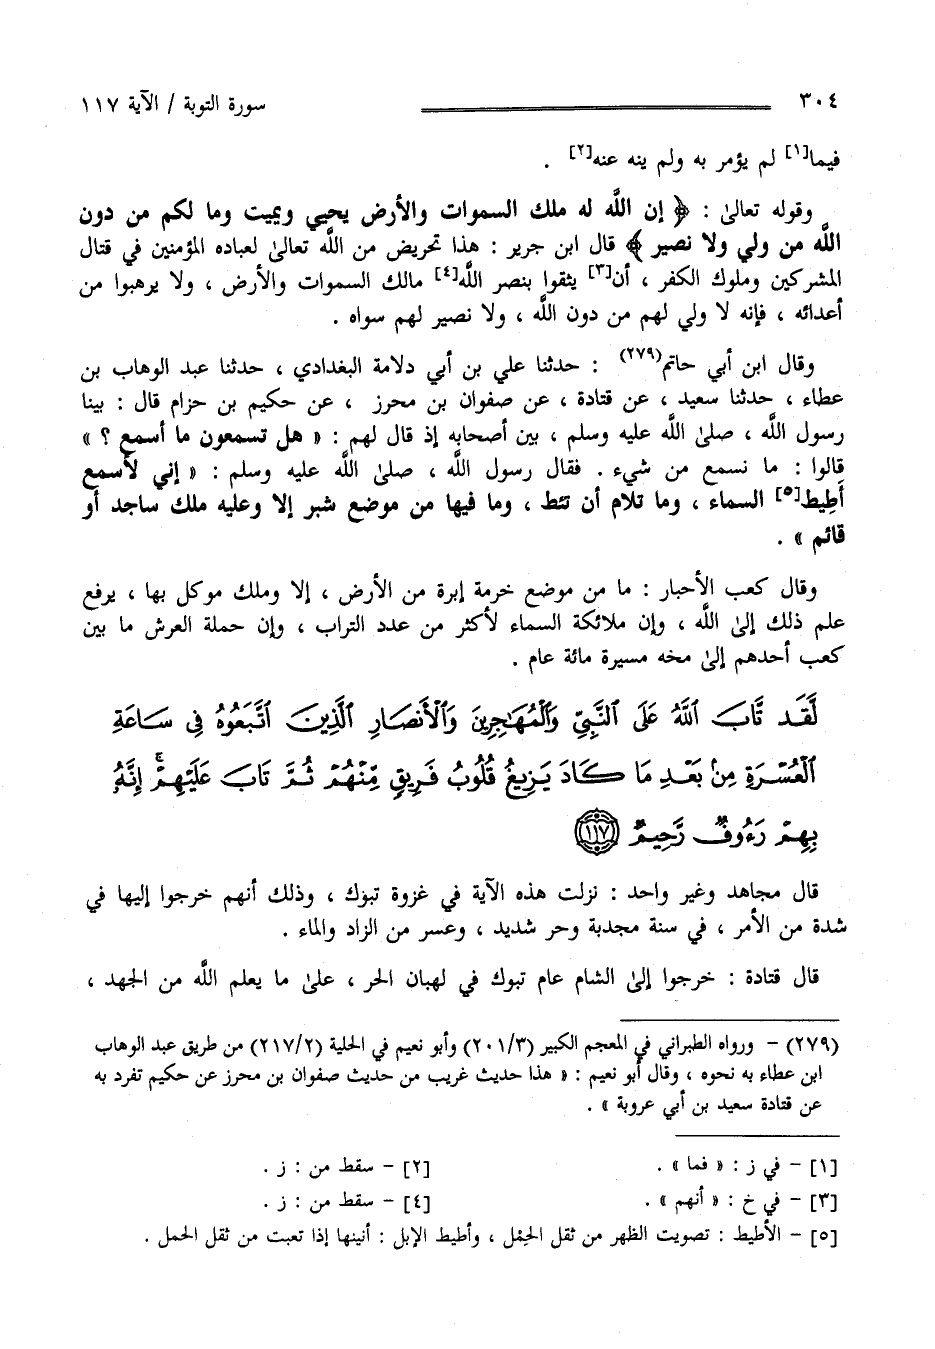 ٣٠٤ سورة التوبة / الآية ١١٧
فيما[١] لم يؤمر به ولم ينه عنه[٢] .
وقوله تعالىٰ : ﴿ إن اللَّه له ملك السموات والأرض يحيي ويميت وما لكم من دون
اللَّه من ولي ولا نصير ﴾ قال ابن جرير : هذا تحريض من اللَّه تعالىٰ لعباده المؤمنين في قتال
المشركين وملوك الكفر ، أن[٣] يثقوا بنصر اللَّه[٤] مالك السموات والأرض ، ولا يرهبوا من
أعدائه ، فإنه لا ولي لهم من دون اللَّه ، ولا نصير لهم سواه .
وقال ابن أبي حاتم(٢٧٩) : حدثنا علي بن أبي دلامة البغدادي ، حدثنا عبد الوهاب بن
عطاء ، حدثنا سعيد ، عن قتادة ، عن صفوان بن محرز ، عن حكيم بن حزام قال : بينا
رسول اللَّه ، صلىٰ اللَّه عليه وسلم ، بين أصحابه إذ قال لهم : « هل تسمعون ما أسمع ؟ »
قالوا : ما نسمع من شيء . فقال رسول اللَّه ، صلىٰ اللَّه عليه وسلم : « إني لأسمع
أَطِيط[٥] السماء ، وما تلام أن تئط ، وما فيها من موضع شبر إلا وعليه ملك ساجد أو
قائم » .
وقال كعب الأحبار : ما من موضع خرمة إبرة من الأرض ، إلا وملك موكل بها ، يرفع
علم ذلك إلىٰ اللَّه ، وإن ملائكة السماء لأكثر من عدد التراب ، وإن حملة العرش ما بين
كعب أحدهم إلىٰ مخه مسيرة مائة عام .
لَّقَد تَّابَ ٱللَّهُ عَلَى ٱلنَّبِيِّ وَٱلْمُهَٰجِرِينَ وَٱلْأَنصَارِ ٱلَّذِينَ ٱتَّبَعُوهُ فِي سَاعَةِ
ٱلْعُسْرَةِ مِنۢ بَعْدِ مَا كَادَ يَزِيغُ قُلُوبُ فَرِيقٍ مِّنْهُمْ ثُمَّ تَابَ عَلَيْهِمْ ۚ إِنَّهُۥ
بِهِمْ رَءُوفٌ رَّحِيمٌ ١١٧
قال مجاهد وغير واحد : نزلت هذه الآية في غزوة تبوك ، وذلك أنهم خرجوا إليها في
شدة من الأمر ، في سنة مجدبة وحر شديد ، وعسر من الزاد والماء .
قال قتادة : خرجوا إلىٰ الشام عام تبوك في لهبان الحر ، علىٰ ما يعلم اللَّه من الجهد ،
(٢٧٩) – ورواه الطبراني في المعجم الكبير (٢٠١/٣) وأبو نعيم في الحلية (٢١٧/٢) من طريق عبد الوهاب
ابن عطاء به نحوه ، وقال أبو نعيم : « هذا حديث غريب من حديث صفوان بن محرز عن حكيم تفرد به
عن قتادة سعيد بن أبي عروبة » .
[١] – في ز : « فما » . [٢] – سقط من : ز .
[٣] – في خ : « أنهم » . [٤] – سقط من : ز .
[٥] – الأطيط : تصويت الظهر من ثقل الحِمْل ، وأطيط الإبل : أنينها إذا تعبت من ثقل الحمل .